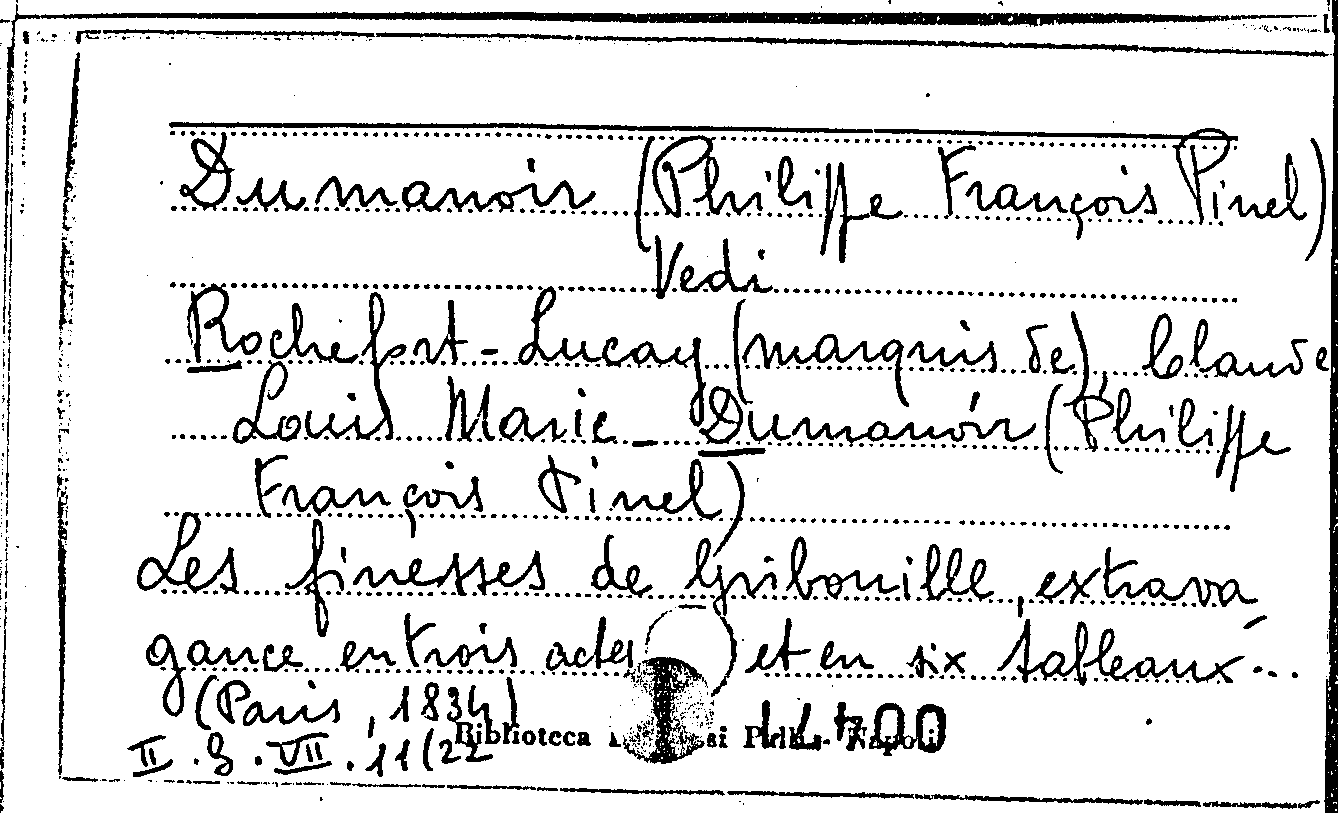 Dumanoir (Philippe François Pinel)
Vedi
Rochefort-Lucay (marquis de), Claude
Louis Marie - Dumanoir (Philippe
François Pinel)
Les finesses de Gribouille, extrava-
gance en trois actes et en six tableaux...
(Paris, 1834)
Biblioteca Napoli
II. G. VII. 11(22